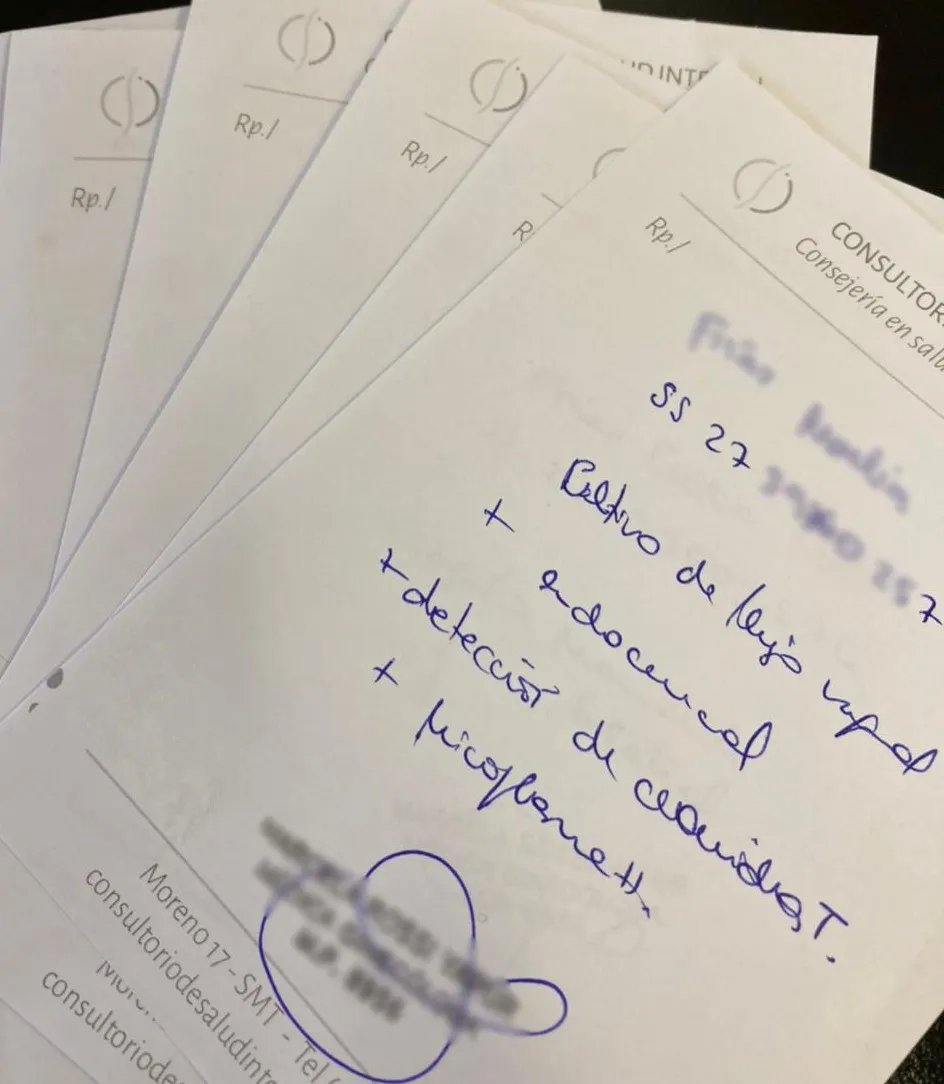 UD INTE
Rp./
Rp./
Rp./
R
Rp./
CONSULTOR
Consejería en salu
SS 27
7
Cultivo de flujo vaginal
+ endocervical
+ detección de clamidia T.
+ Micoplasma H.
M.P.
Moreno 17 - SMT - Tel
consultoriodesaludinte
consultoriode